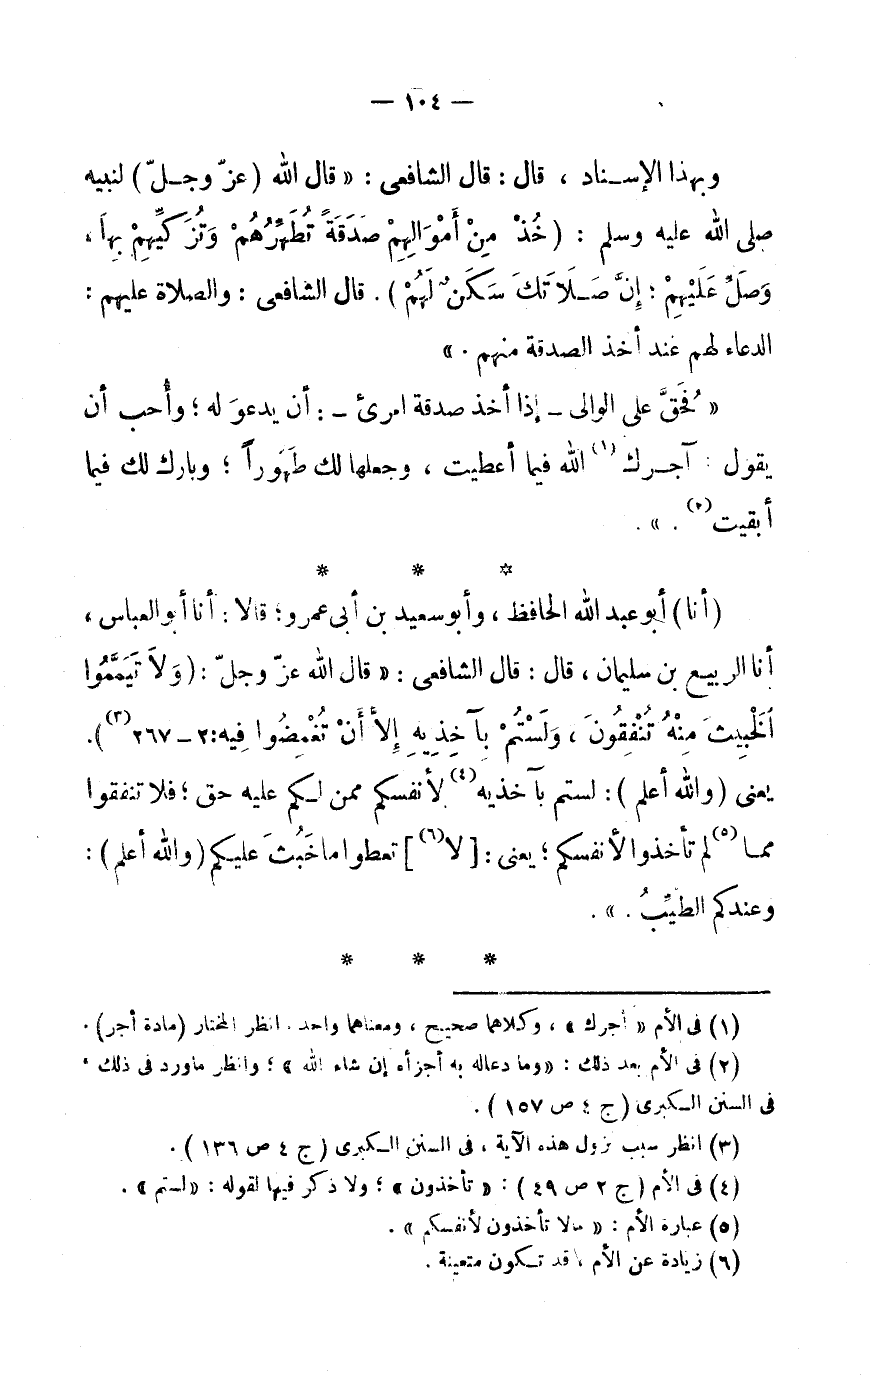 — ١٠٤ —
وبهذا الإسـناد ، قال : قال الشافعى : « قال الله (عزّ وجـلّ) لنبيه
صلى الله عليه وسلم : (خُذْ مِنْ أَمْوَالِهِمْ صَدَقَةً تُطَهِّرُهُمْ وَتُزَكِّيهِمْ بِهاَ ،
وَصَلِّ عَلَيْهِمْ : إِنَّ صَـلَاتَكَ سَكَنٌ لَهُمْ ) . قال الشافعى : والصلاة عليهم :
الدعاء لهم عند أخذ الصدقة منهم . »
« فَحَقٌّ على الوالى ـ إذا أخذ صدقة امرئ ـ : أن يدعوَ له ؛ وأُحب أن
يقول : آجـرك (١) الله فيما أعطيت ، وجعلها لك طَهَوراً ؛ وبارك لك فيما
أبقيت (٢) . » .
* * *
(أنا) أبو عبد الله الحافظ ، وأبو سعيد بن أبى عمرو ؛ قالا : أنا أبو العباس ،
أنا الربيع بن سليمان ، قال : قال الشافعى : « قال الله عزّ وجلّ : (وَلاَ تَيَمَّمُوا
اَلْخَبِيثَ مِنْهُ تُنْفِقُونَ ، وَلَسْتُمْ بِآخِذِيهِ إِلاَّ أَنْ تُغْمِضُوا فِيهِ : ٢ ـ ٢٦٧ (٣) ) .
يعنى (والله أعلم ) : لستم بآخذيه (٤) لأنفسكم ممن لـكم عليه حق ؛ فلا تنفقوا
ممـا (٥) لم تأخذوا لأنفسكم ؛ يعنى : [ لا (٦) ] تعطوا ما خَبُثَ عليـكم (والله أعلم ) :
وعندكم الطيِّبُ . » .
* * *
(١) فى الأم « أجرك » ، وكلاهما صحيح ، ومعناهما واحد . انظر المختار (مادة أجر) .
(٢) فى الأم بعد ذلك : «وما دعا له به أجزأه إن شاء الله » ؛ وانظر ماورد فى ذلك
فى السنن الـكبرى (ج ٤ ص ١٥٧ ) .
(٣) انظر سبب نزول هذه الآية ، فى السنن الـكبرى (ج ٤ ص ١٣٦ ) .
(٤) فى الأم (ج ٢ ص ٤٩ ) : « تأخذون » ؛ ولا ذكر فيها لقوله : «لستم » .
(٥) عبارة الأم : « ما لا تأخذون لأنفسكم » .
(٦) زيادة عن الأم ، قد تـكون متعينة .